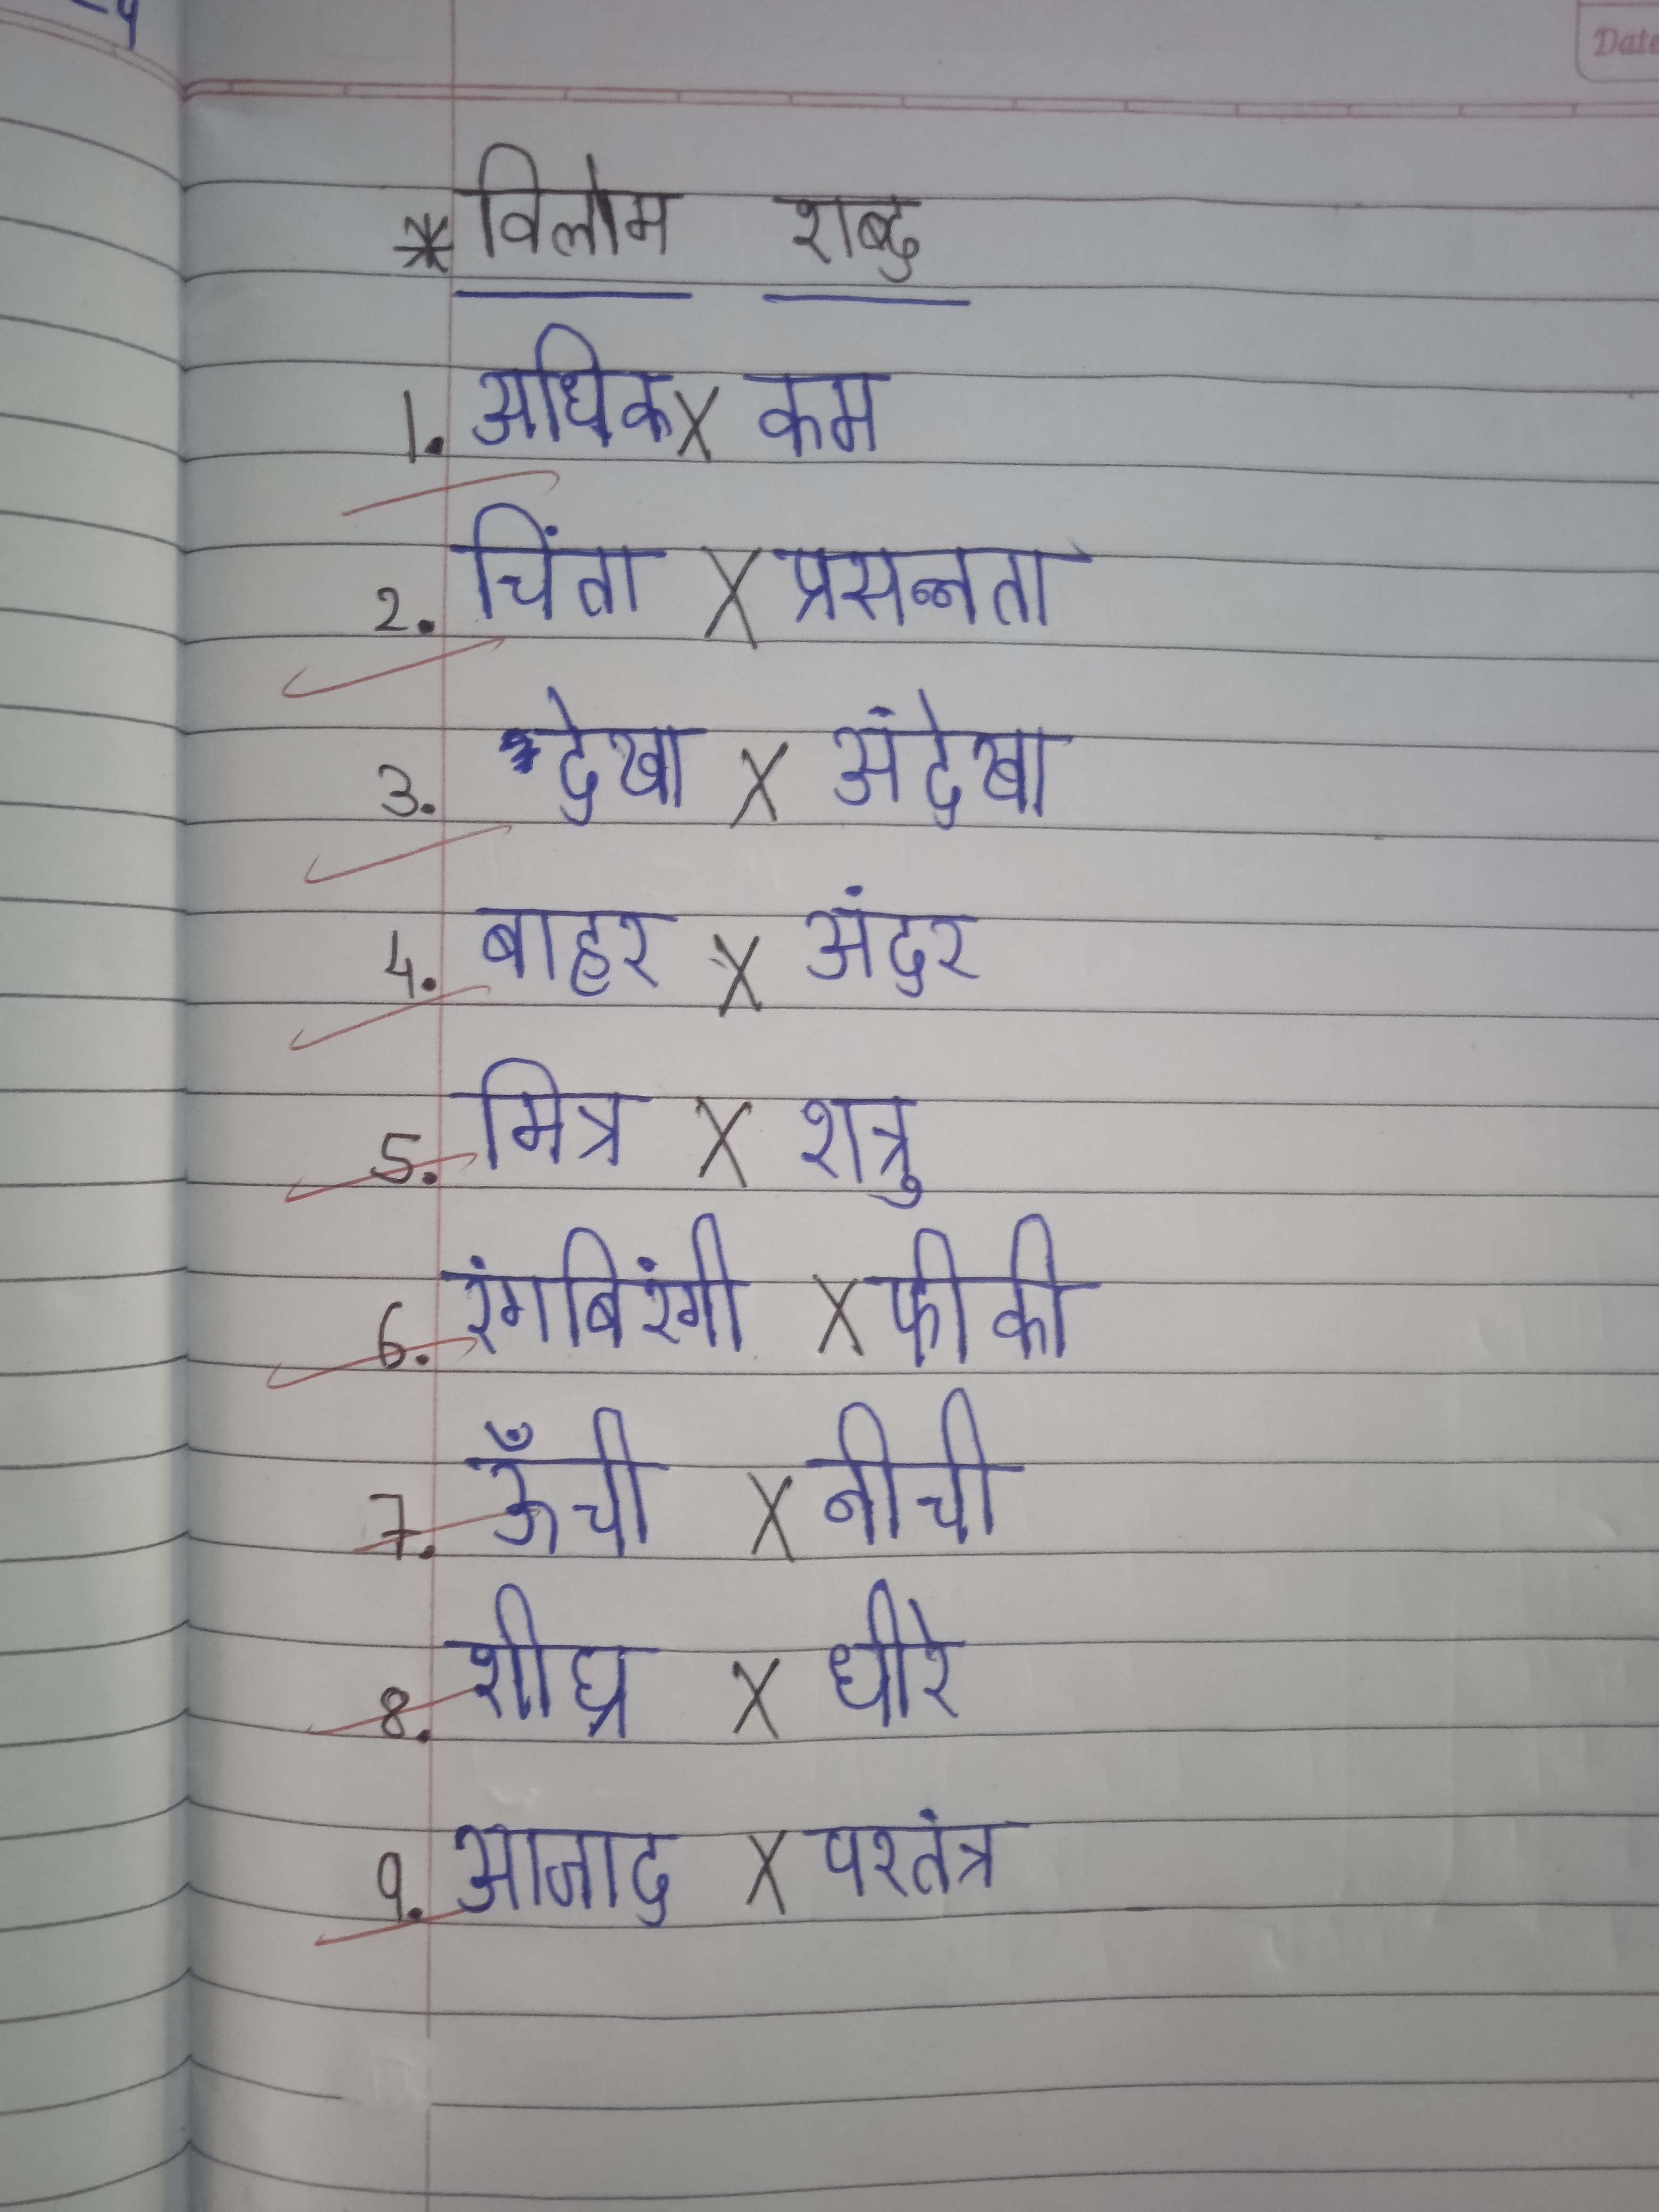 Date
* विलोम शब्द
1. अधिक X कम
2. चिंता X प्रसन्नता
3. देखा X अंदेखा
4. बाहर X अंदर
5. मित्र X शत्रु
6. रंगबिरंगी X फीकी
7. ऊँची X नीची
8. शीघ्र X धीरे
9. आजाद X परतंत्र